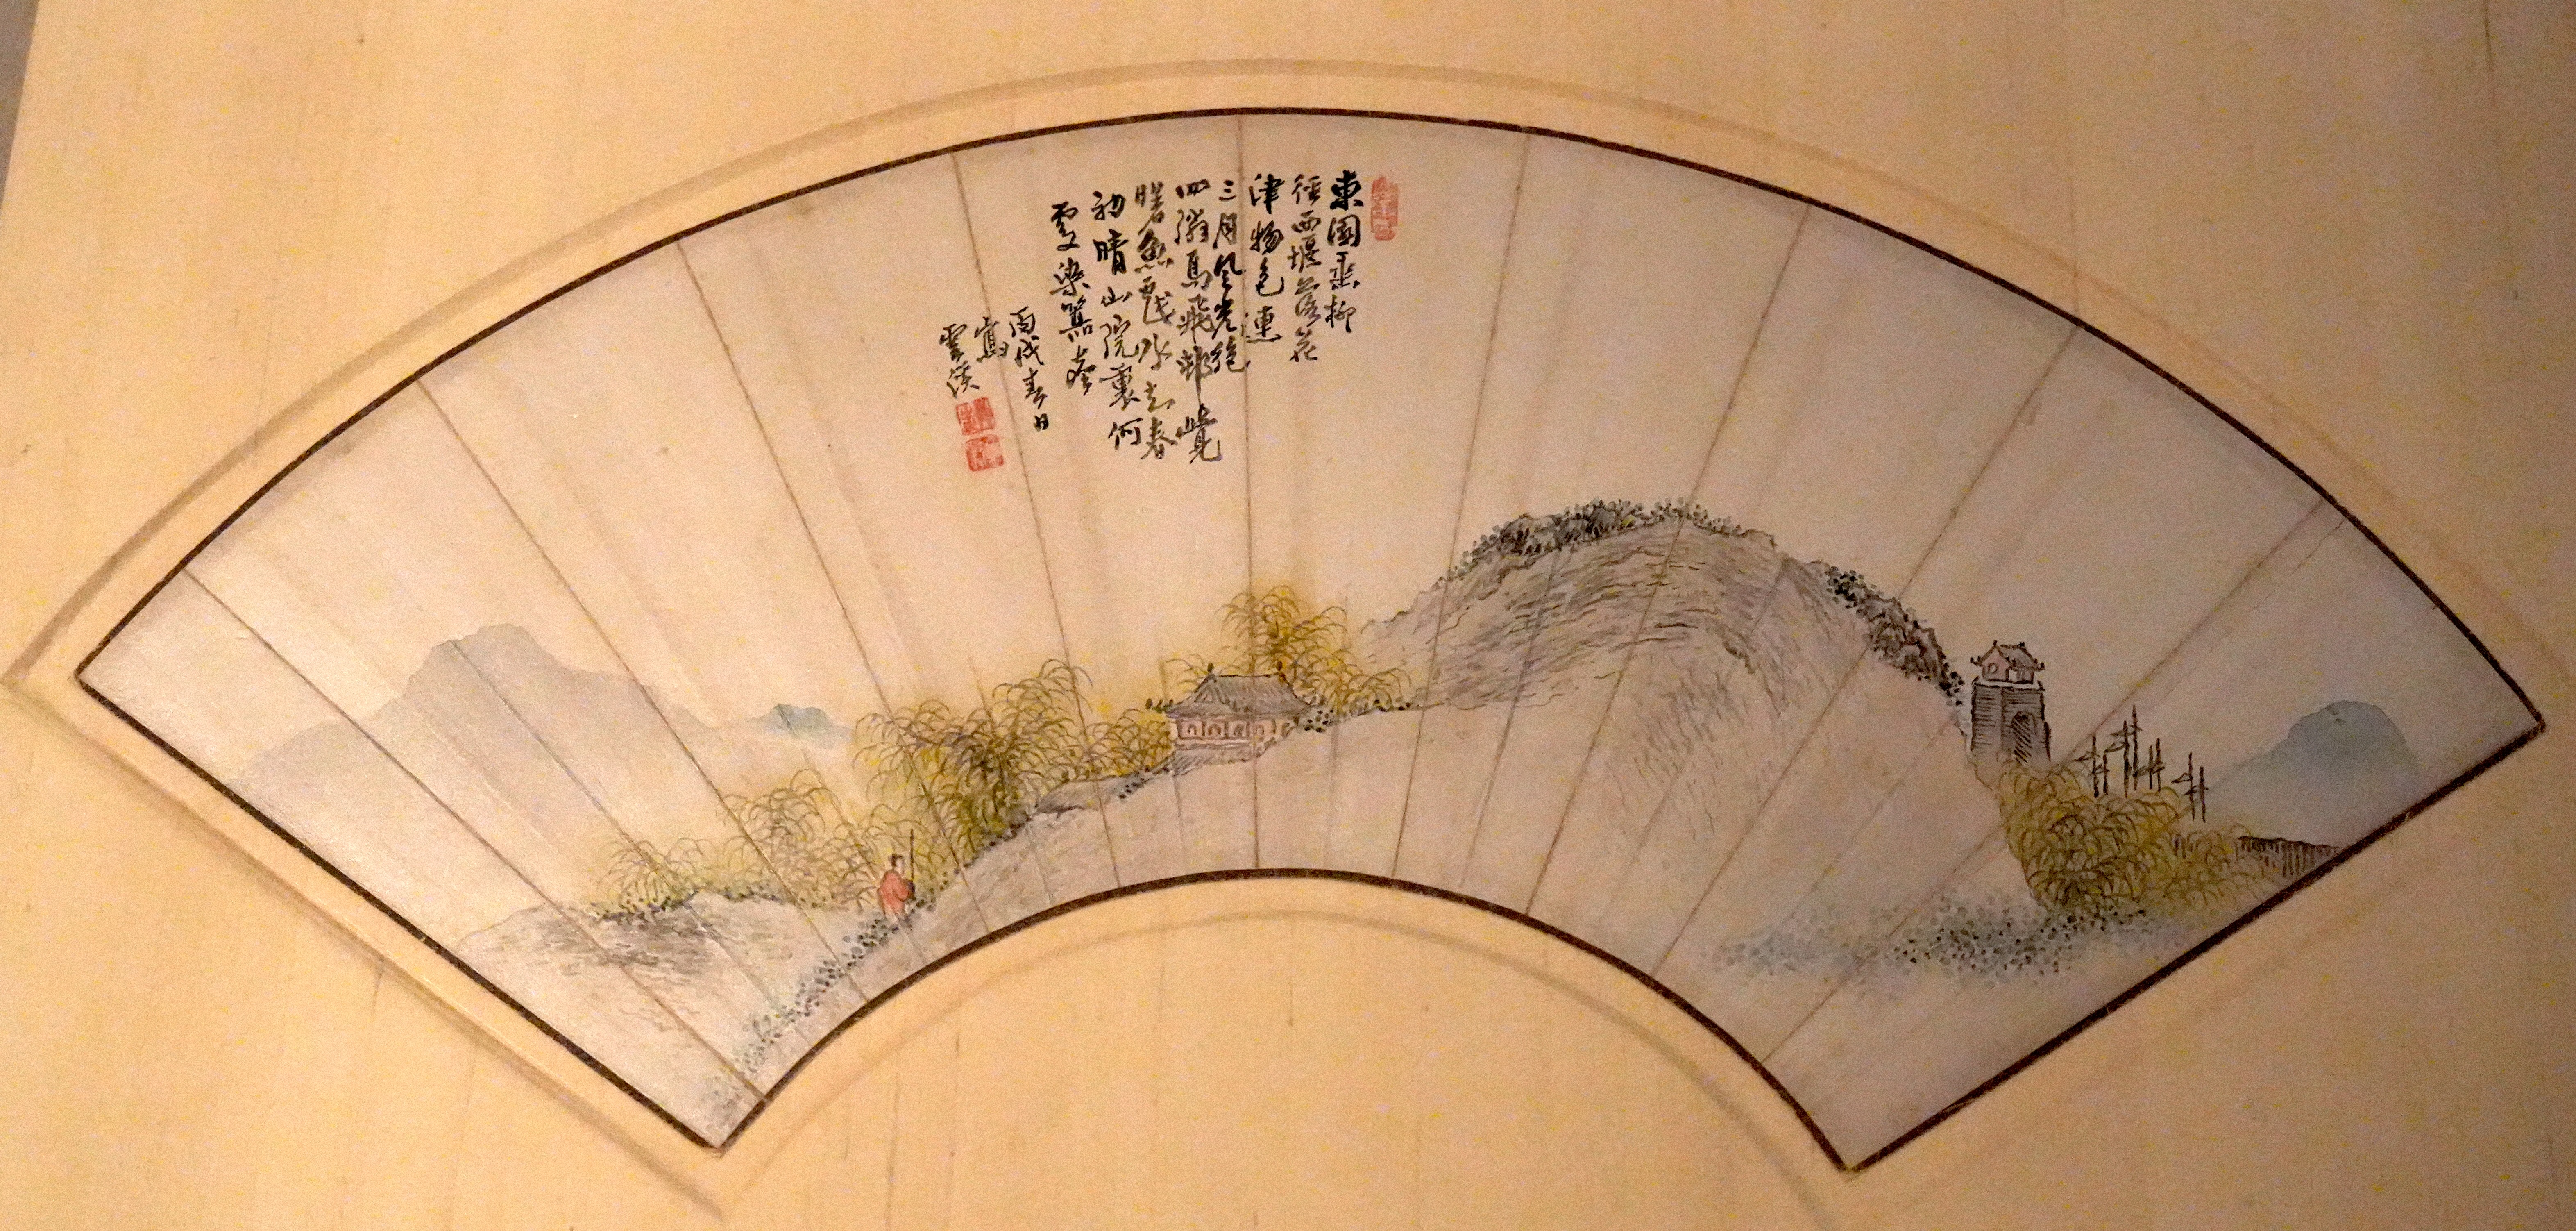 東園垂柳
徑西堰落花
津物色連
三月風光絕
四鄰鳥飛邨覺
曙魚戲水知春
初晴山院裏何
處染囂塵
丙戌春日
寫
雲溪